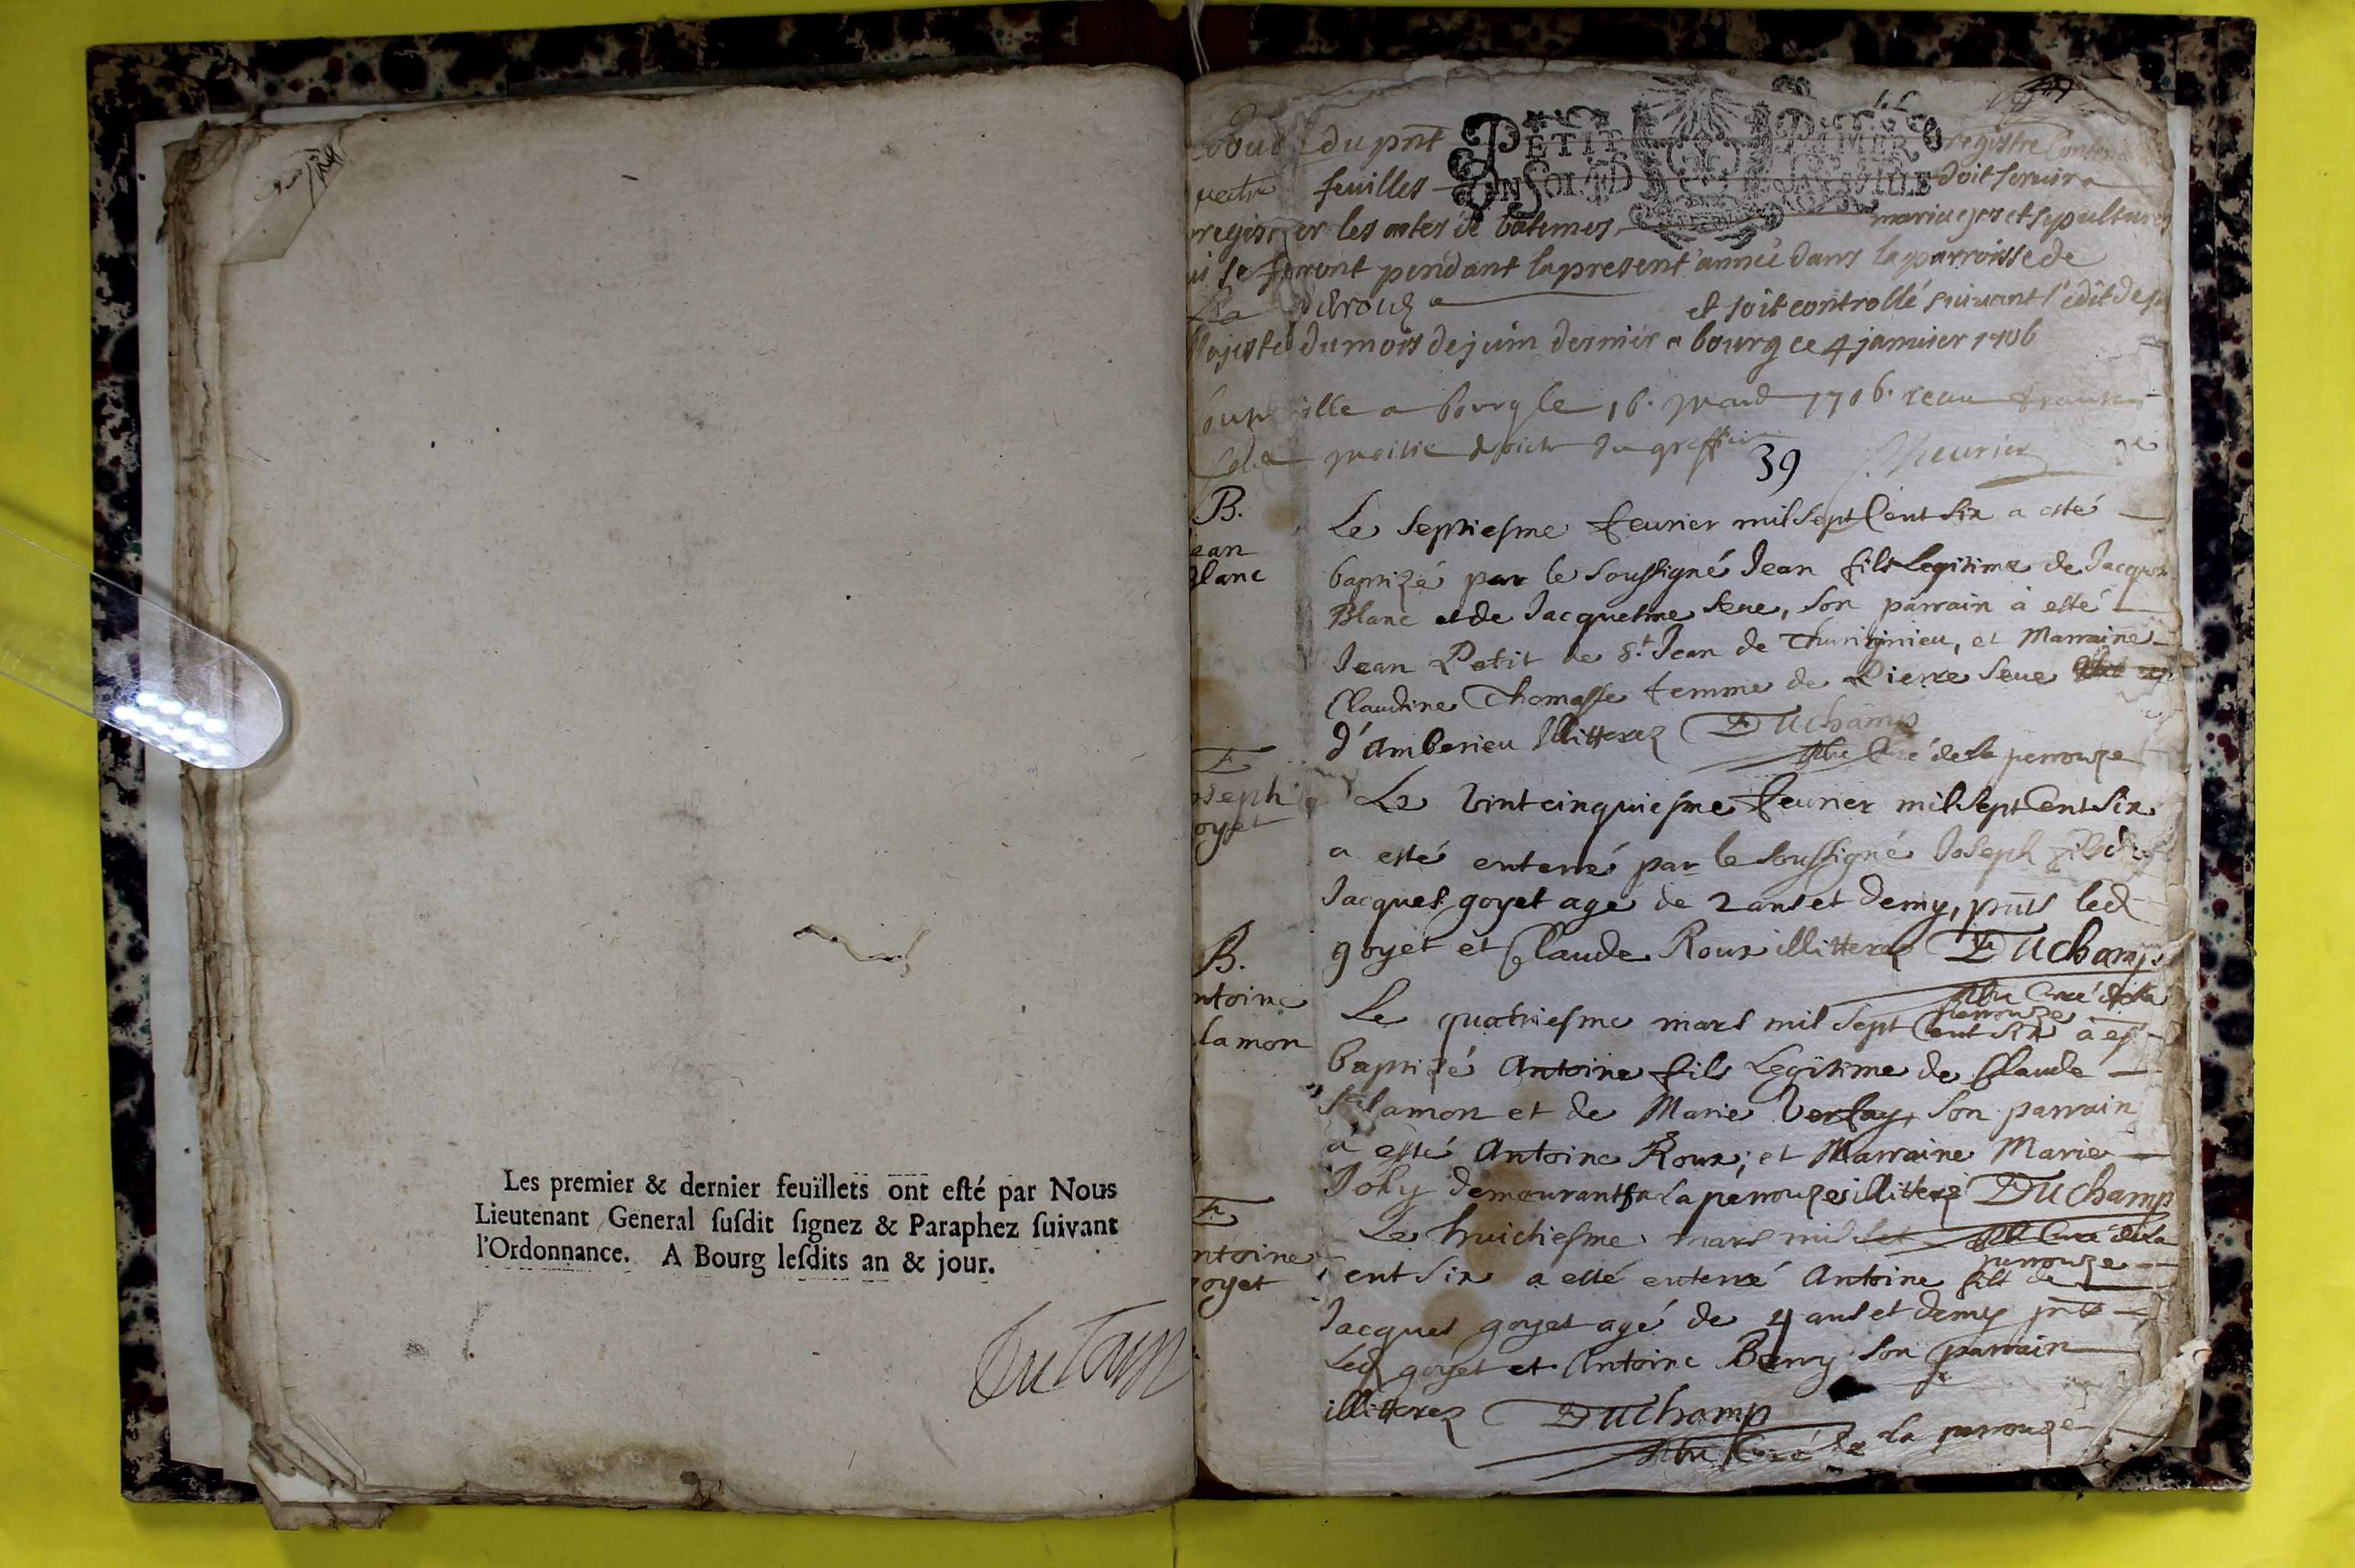 Les premier & dernier feuillets ont esté par Nous
Lieutenant General susdit signez & Paraphez suivant
l'Ordonnance. A Bourg lesdits an & jour.
du pnt PETIT PAPIER registre Conten
feuilles doit servir a
les actes de batemes, mariages et sepultures
se feront pendant la present année dans la parroisse de
La et soit controllé suivant l'edit de sa
Majesté du mois de juin dernier a bourg ce 4 janvier 1706
a bourg le 16. mard 1706.
moitie du greffier
39
B.
ean
Blanc
Le septiesme fevrier mil sept Cent six a esté
baptizé par le soussigné Jean fils Legitime de Jacques
Blanc et de Jacquetme Seve, son parrain à esté
Jean Petit de St. Jean de Thurignieu, et Marraine
Claudine Thomasse femme de Pierre Seve
d'Amberieu illitterez Duchamp
ptre Curé de La perrouze
E
oseph
oyet
Le vintcinquiesme fevrier mil sept Cent six
a esté enterré par le soussigné Joseph fils de
Jacques goyet agé de 2 ans et demy, pnts led
goyet et Claude Roux illitterez Duchamp
ptre Curé de La
perrouze
B.
ntoine
lamon
Le quatriesme mars mil sept Cent six a es
baptizé Antoine fils Legitime de Claude
Salamon et de Marie Verfay, son parrain
à esté Antoine Roux; et Marraine Marie
Joly demourants a La perrouze illitterez Duchamp
ptre Curé de La
perrouze
E
ntoine
goyet
Le huictiesme mars mil set
Cent six a esté enterré Antoine fils de
Jacques goyet agé de 4 ans et demy pnts
led goyet et Antoine Berry son parrain
illitterez Duchamp
ptre Curé de La perrouze